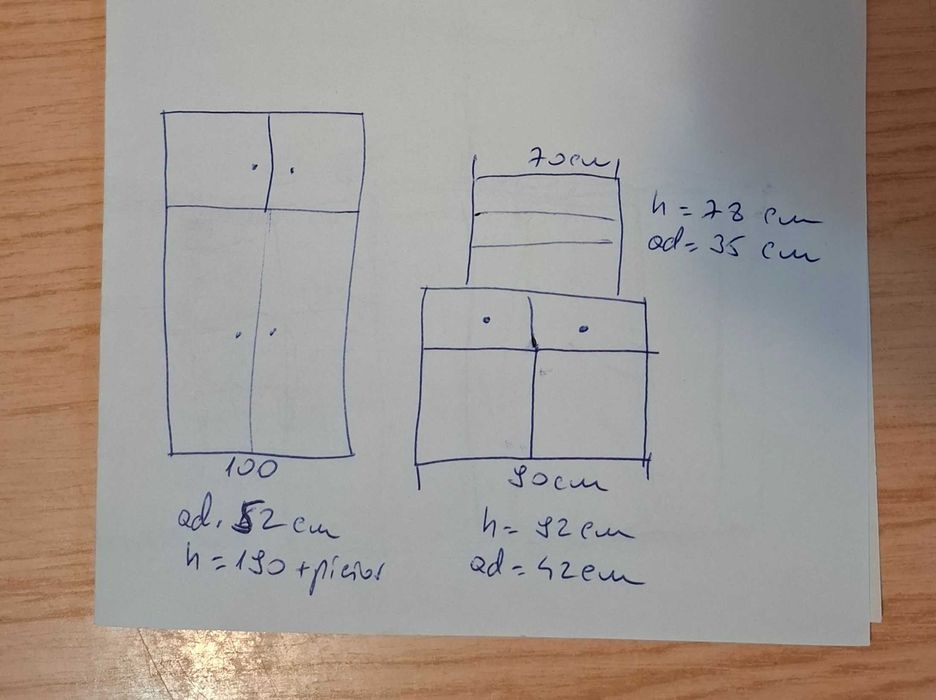 100
ad. 52 cm
h = 190 + picior
70cm
h = 78 cm
ad = 35 cm
90cm
h = 92cm
ad = 42cm